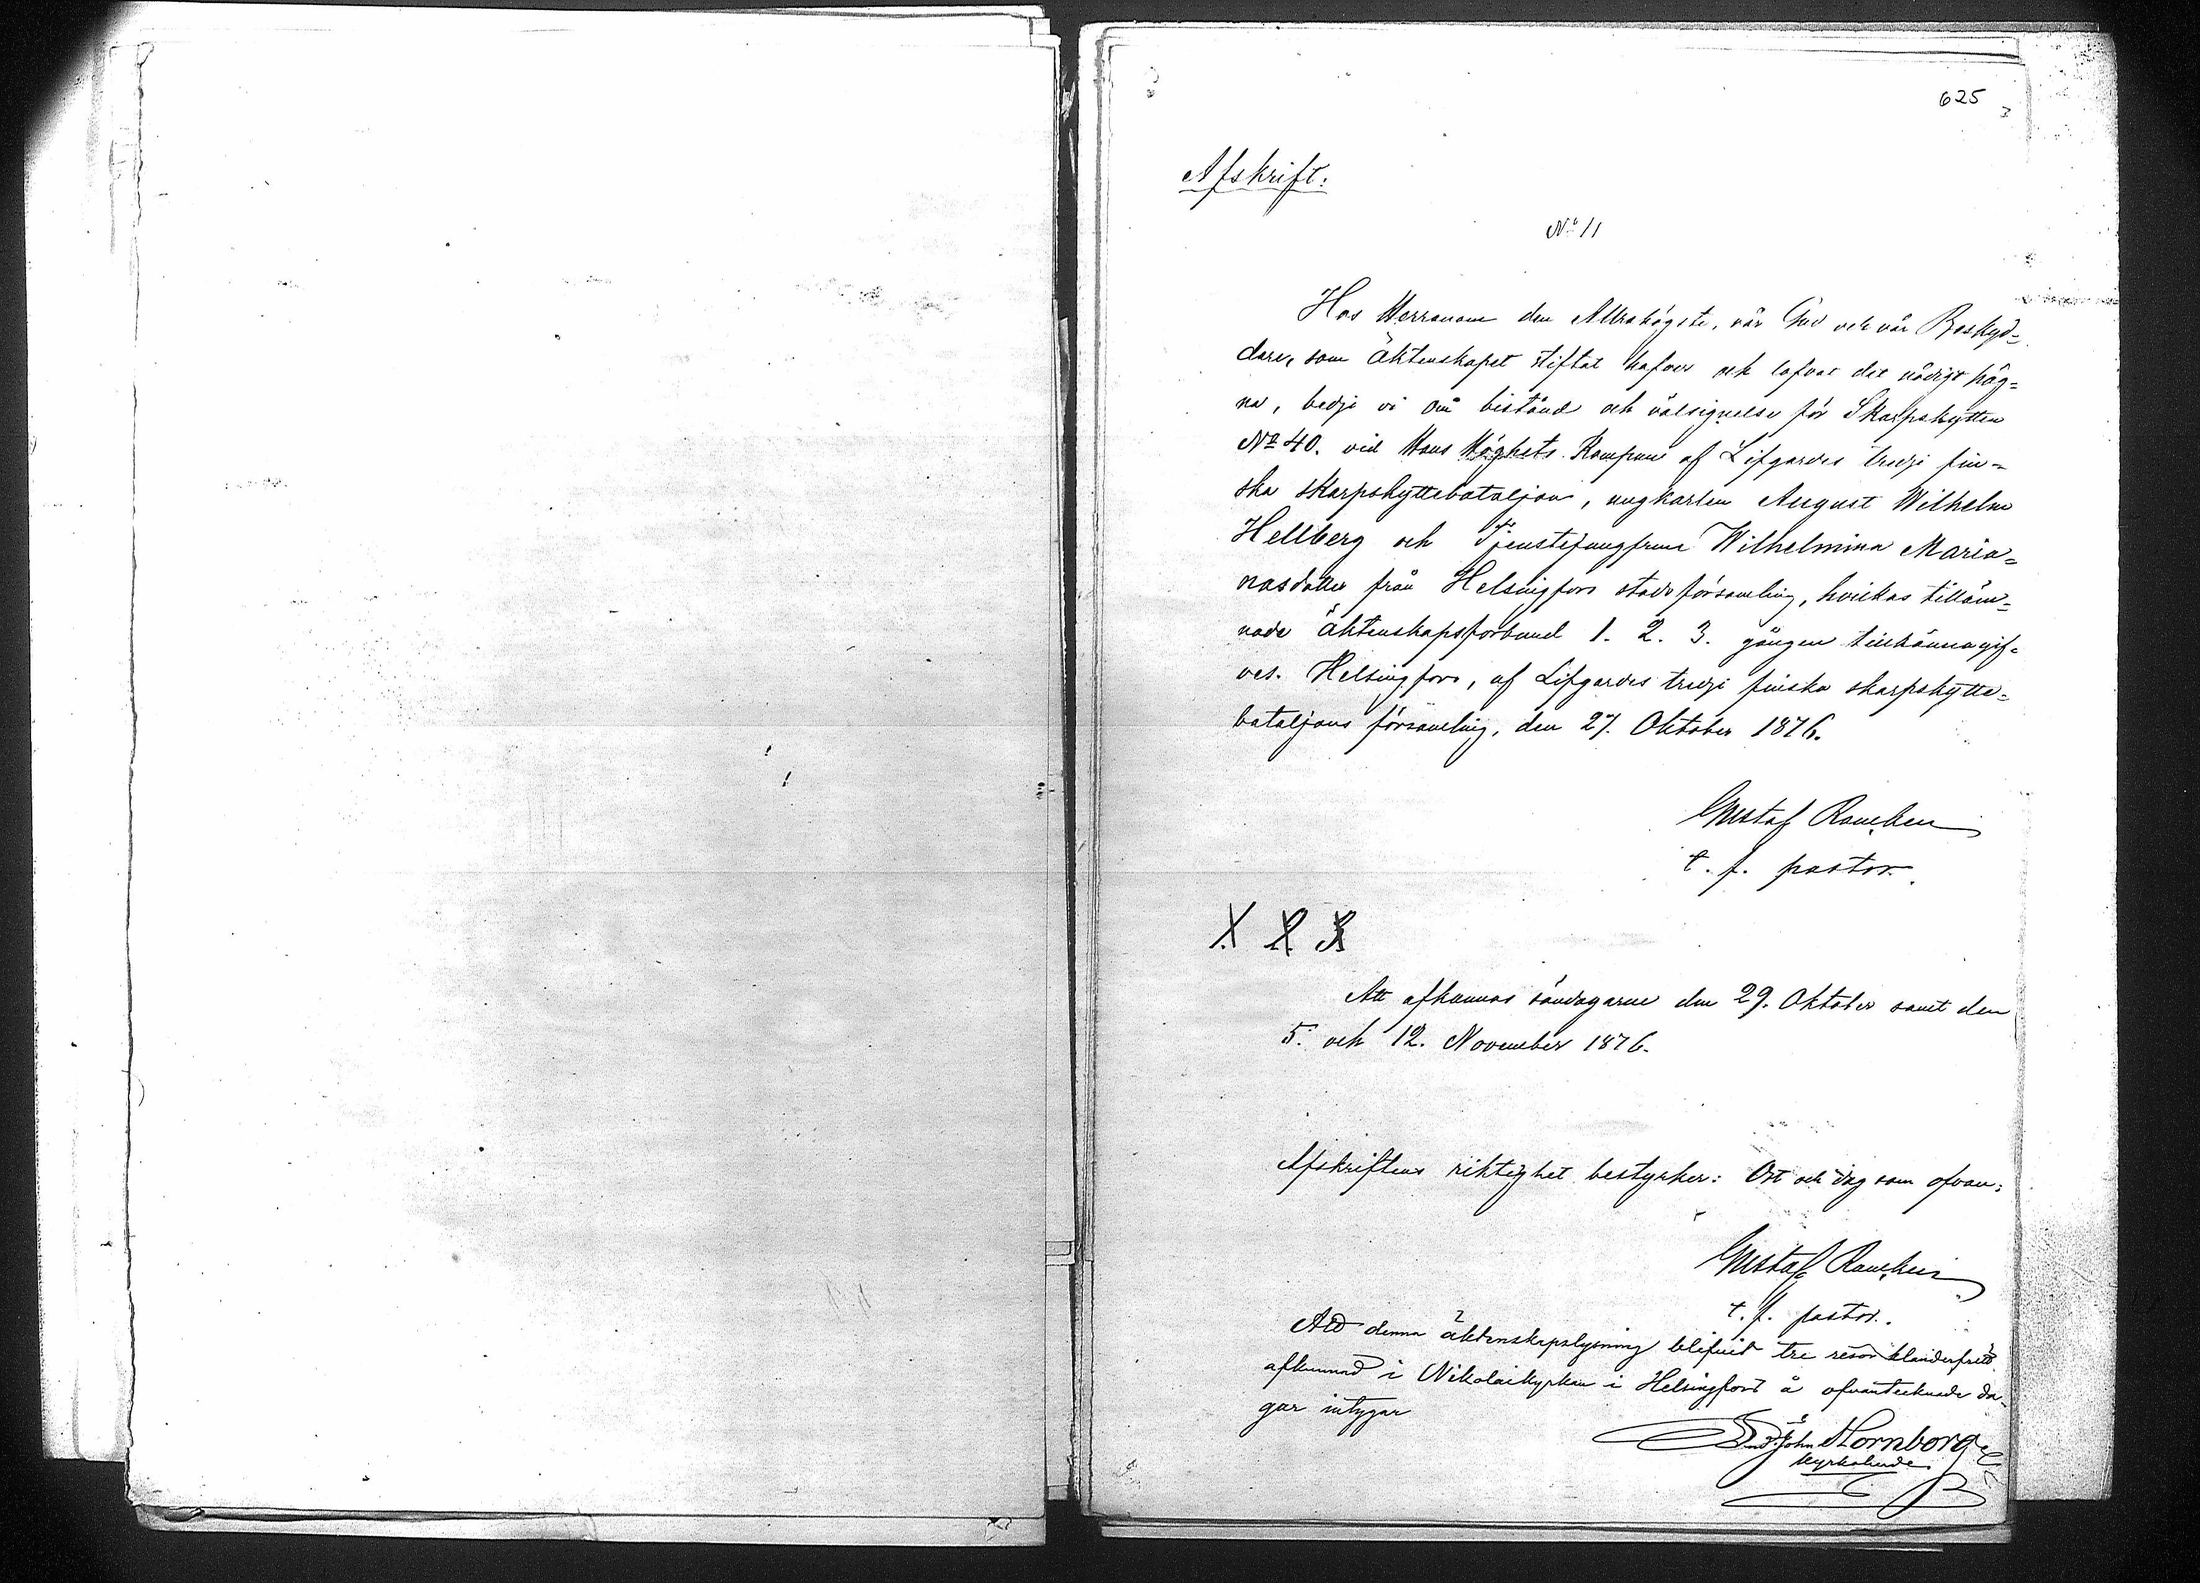 625
Afskrift:
No 11
Hos Herranom den Allrahögste, vår Gud och vår Beskyd=
dare, som Äktenskapet stiftat hafver och lofvat det nådigt häg=
na, bedje vi om bistånd och välsignelse för Skarpskytten
No 40. vid Hans Höghets Kompani af Lifgardes tredje fin=
ska skarpskyttebataljon, ungkarlen August Wilhelm
Hellberg och Tjenstejungfrun Wilhelmina Maria=
nasdotter från Helsingfors stadsförsamling, hvilkas tilläm=
nade äktenskapsförbund 1. 2. 3. gången tillkännagif=
ves. Helsingfors, af Lifgardes tredje finska skarpskytte=
bataljons församling, den 27. Oktober 1876.
Gustaf
t. f. pastor.
1 2 3
Att afkunnas söndagarne den 29. Oktober samt den
5. och 12. November 1876.
Afskriftens riktighet bestyrker: Ort och dag som ofvan:
Gustaf
t. f. pastor.
Att denna äktenskapslysning blifvit tre resor klanderfritt
afkunnad i Nikolaikyrkan i Helsingfors å ofvantecknade da=
gar intygar
John Hornborg